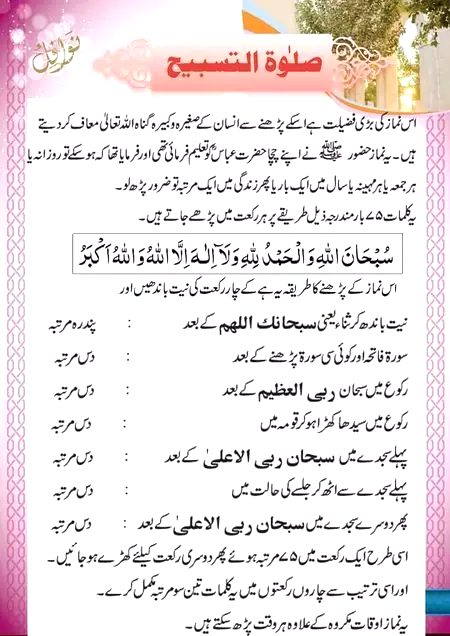 نوافل
صلوٰۃ التسبیح
اس نماز کی بڑی فضیلت ہے اسکے پڑھنے سے انسان کے صغیرہ و کبیرہ گناہ اللہ تعالیٰ معاف کر دیتے
ہیں۔ یہ نماز حضور ﷺ نے اپنے چچا حضرت عباسؓ کو تعلیم فرمائی تھی اور فرمایا تھا کہ ہو سکے تو روزانہ یا
ہر جمعہ یا ہر مہینہ یا سال میں ایک بار یا پھر زندگی میں ایک مرتبہ تو ضرور پڑھ لو۔
یہ کلمات ۷۵ بار مندرجہ ذیل طریقے پر ہر رکعت میں پڑھے جاتے ہیں۔
سُبْحَانَ اللهِ وَالْحَمْدُ لِلّٰهِ وَلَآ اِلٰهَ اِلَّا اللهُ وَاللهُ اَكْبَرُ
اس نماز کے پڑھنے کا طریقہ یہ ہے کے چار رکعت کی نیت باندھیں اور
نیت باندھ کر ثناء یعنی سبحانك اللهم کے بعد : پندرہ مرتبہ
سورۃ فاتحہ اور کوئی سی سورۃ پڑھنے کے بعد : دس مرتبہ
رکوع میں سبحان ربی العظیم کے بعد : دس مرتبہ
رکوع میں سیدھا کھڑا ہو کر قومہ میں : دس مرتبہ
پہلے سجدے میں سبحان ربی الاعلیٰ کے بعد : دس مرتبہ
پہلے سجدے سے اٹھ کر جلسے کی حالت میں : دس مرتبہ
پھر دوسرے سجدے میں سبحان ربی الاعلیٰ کے بعد : دس مرتبہ
اسی طرح ایک رکعت میں ۷۵ مرتبہ ہوئے پھر دوسری رکعت کیلئے کھڑے ہو جائیں۔
اور اسی ترتیب سے چاروں رکعتوں میں یہ کلمات تین سو مرتبہ مکمل کرے۔
یہ نماز اوقات مکروہ کے علاوہ ہر وقت پڑھ سکتے ہیں۔